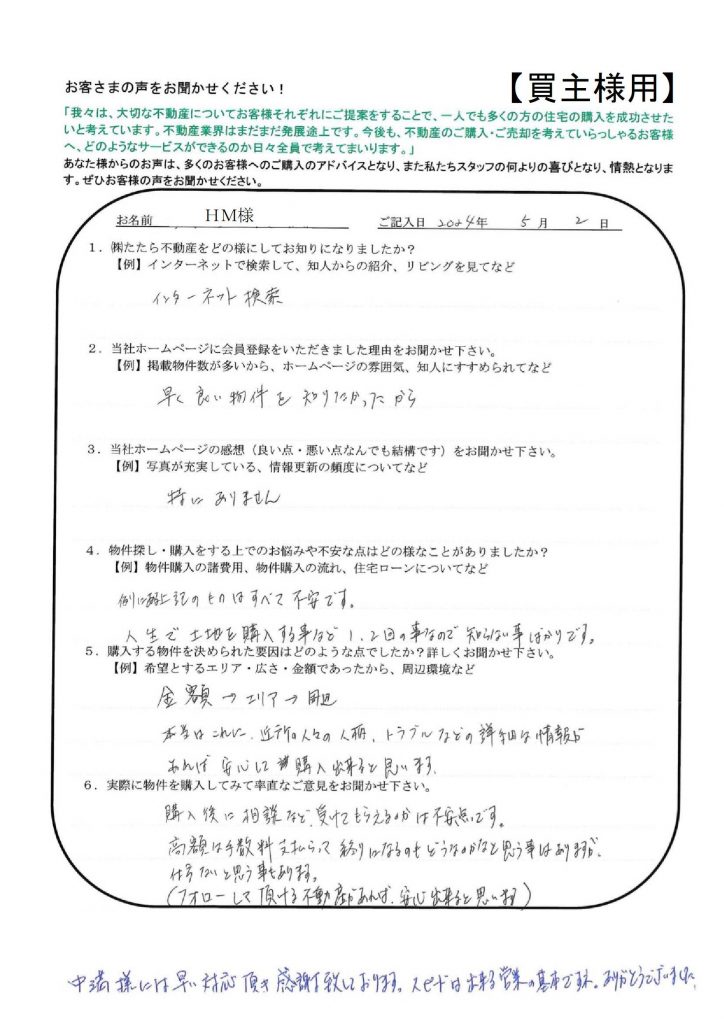 お客さまの声をお聞かせください！
【買主様用】
「我々は、大切な不動産についてお客様それぞれにご提案をすることで、一人でも多くの方の住宅の購入を成功させた
いと考えています。不動産業界はまだまだ発展途上です。今後も、不動産のご購入・ご売却を考えていらっしゃるお客様
へ、どのようなサービスができるのか日々全員で考えてまいります。」
あなた様からのお声は、多くのお客様へのご購入のアドバイスとなり、また私たちスタッフの何よりの喜びとなり、情熱となりま
す。ぜひお客様の声をお聞かせください。
お名前 HM様 ご記入日 2024年 5月 2日
１．㈱たたら不動産をどの様にしてお知りになりましたか？
【例】インターネットで検索して、知人からの紹介、リビングを見てなど
インターネット検索
２．当社ホームページに会員登録をいただきました理由をお聞かせ下さい。
【例】掲載物件数が多いから、ホームページの雰囲気、知人にすすめられてなど
早く良い物件を知りたかったから
３．当社ホームページの感想（良い点・悪い点なんでも結構です）をお聞かせ下さい。
【例】写真が充実している、情報更新の頻度についてなど
特にありません
４．物件探し・購入をする上でのお悩みや不安な点はどの様なことがありましたか？
【例】物件購入の諸費用、物件購入の流れ、住宅ローンについてなど
例に上記のものはすべて不安です。
人生で土地を購入する事など1、2回の事なので知らない事ばかりです。
５．購入する物件を決められた要因はどのような点でしたか？詳しくお聞かせ下さい。
【例】希望とするエリア・広さ・金額であったから、周辺環境など
金額→エリア→周辺
本当はこれに、近所の人々の人柄、トラブルなどの詳細な情報が
あれば安心して購入出来ると思います。
６．実際に物件を購入してみて率直なご意見をお聞かせ下さい。
購入後に相談など、受けてもらえるのかは不安点です。
高額な手数料支払らって終りになるのもどうなのかなと思う事はありますが、
仕方ないと思う事もあります。
（フォローして頂ける不動産があれば、安心出来ると思います）
中満様には早い対応頂き感謝致しております。スピードは出来る営業の基本ですネ。ありがとうございました